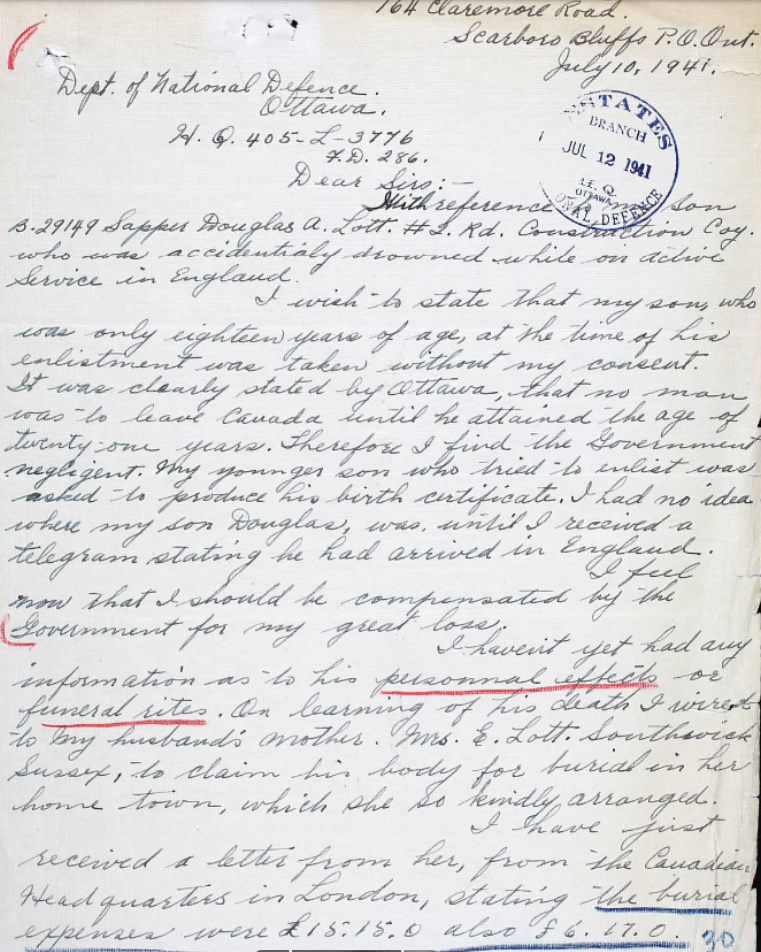 164 Claremore Road.
Scarboro Bluffs P.O. Ont.
July 10, 1941.
Dept. of National Defence.
Ottawa.
H. Q. 405-L-3776
F.D. 286.
ESTATES
BRANCH
JUL 12 1941
H. Q.
OTTAWA
ONAL DEFENCE
Dear Sirs:-
With reference to my son
B.29149 Sapper Douglas A. Lott. #2. Rd. Construction Coy.
who was accidentialy drowned while on active
Service in England.
I wish to state that my son, who
was only eighteen years of age, at the time of his
enlistment was taken without my consent.
It was clearly stated by Ottawa, that no man
was to leave Canada until he attained the age of
twenty-one years. Therefore I find the Government
negligent. My younger son who tried to enlist was
asked to produce his birth certificate. I had no idea
where my son Douglas, was, until I received a
telegram stating he had arrived in England.
I feel
now that I should be compensated by the
Government for my great loss.
I haven't yet had any
information as to his personnal effects or
funeral rites. On learning of his death I wired
to my husband's mother. Mrs. E. Lott. Southwick
Sussex, to claim his body for burial in her
home town, which she so kindly arranged.
I have just
received a letter from her, from the Canadian
Headquarters in London, stating the burial
expenses were £15.15.0 also £6.17.0.
30